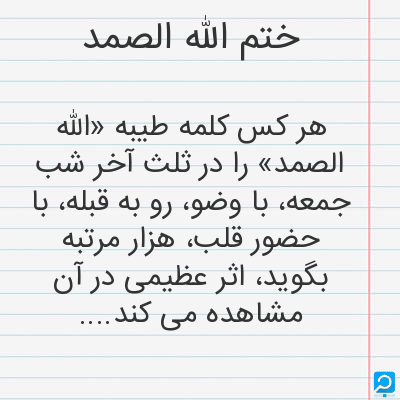 ختم الله الصمد
هر کس کلمه طیبه «الله
الصمد» را در ثلث آخر شب
جمعه، با وضو، رو به قبله، با
حضور قلب، هزار مرتبه
بگوید، اثر عظیمی در آن
مشاهده می کند....